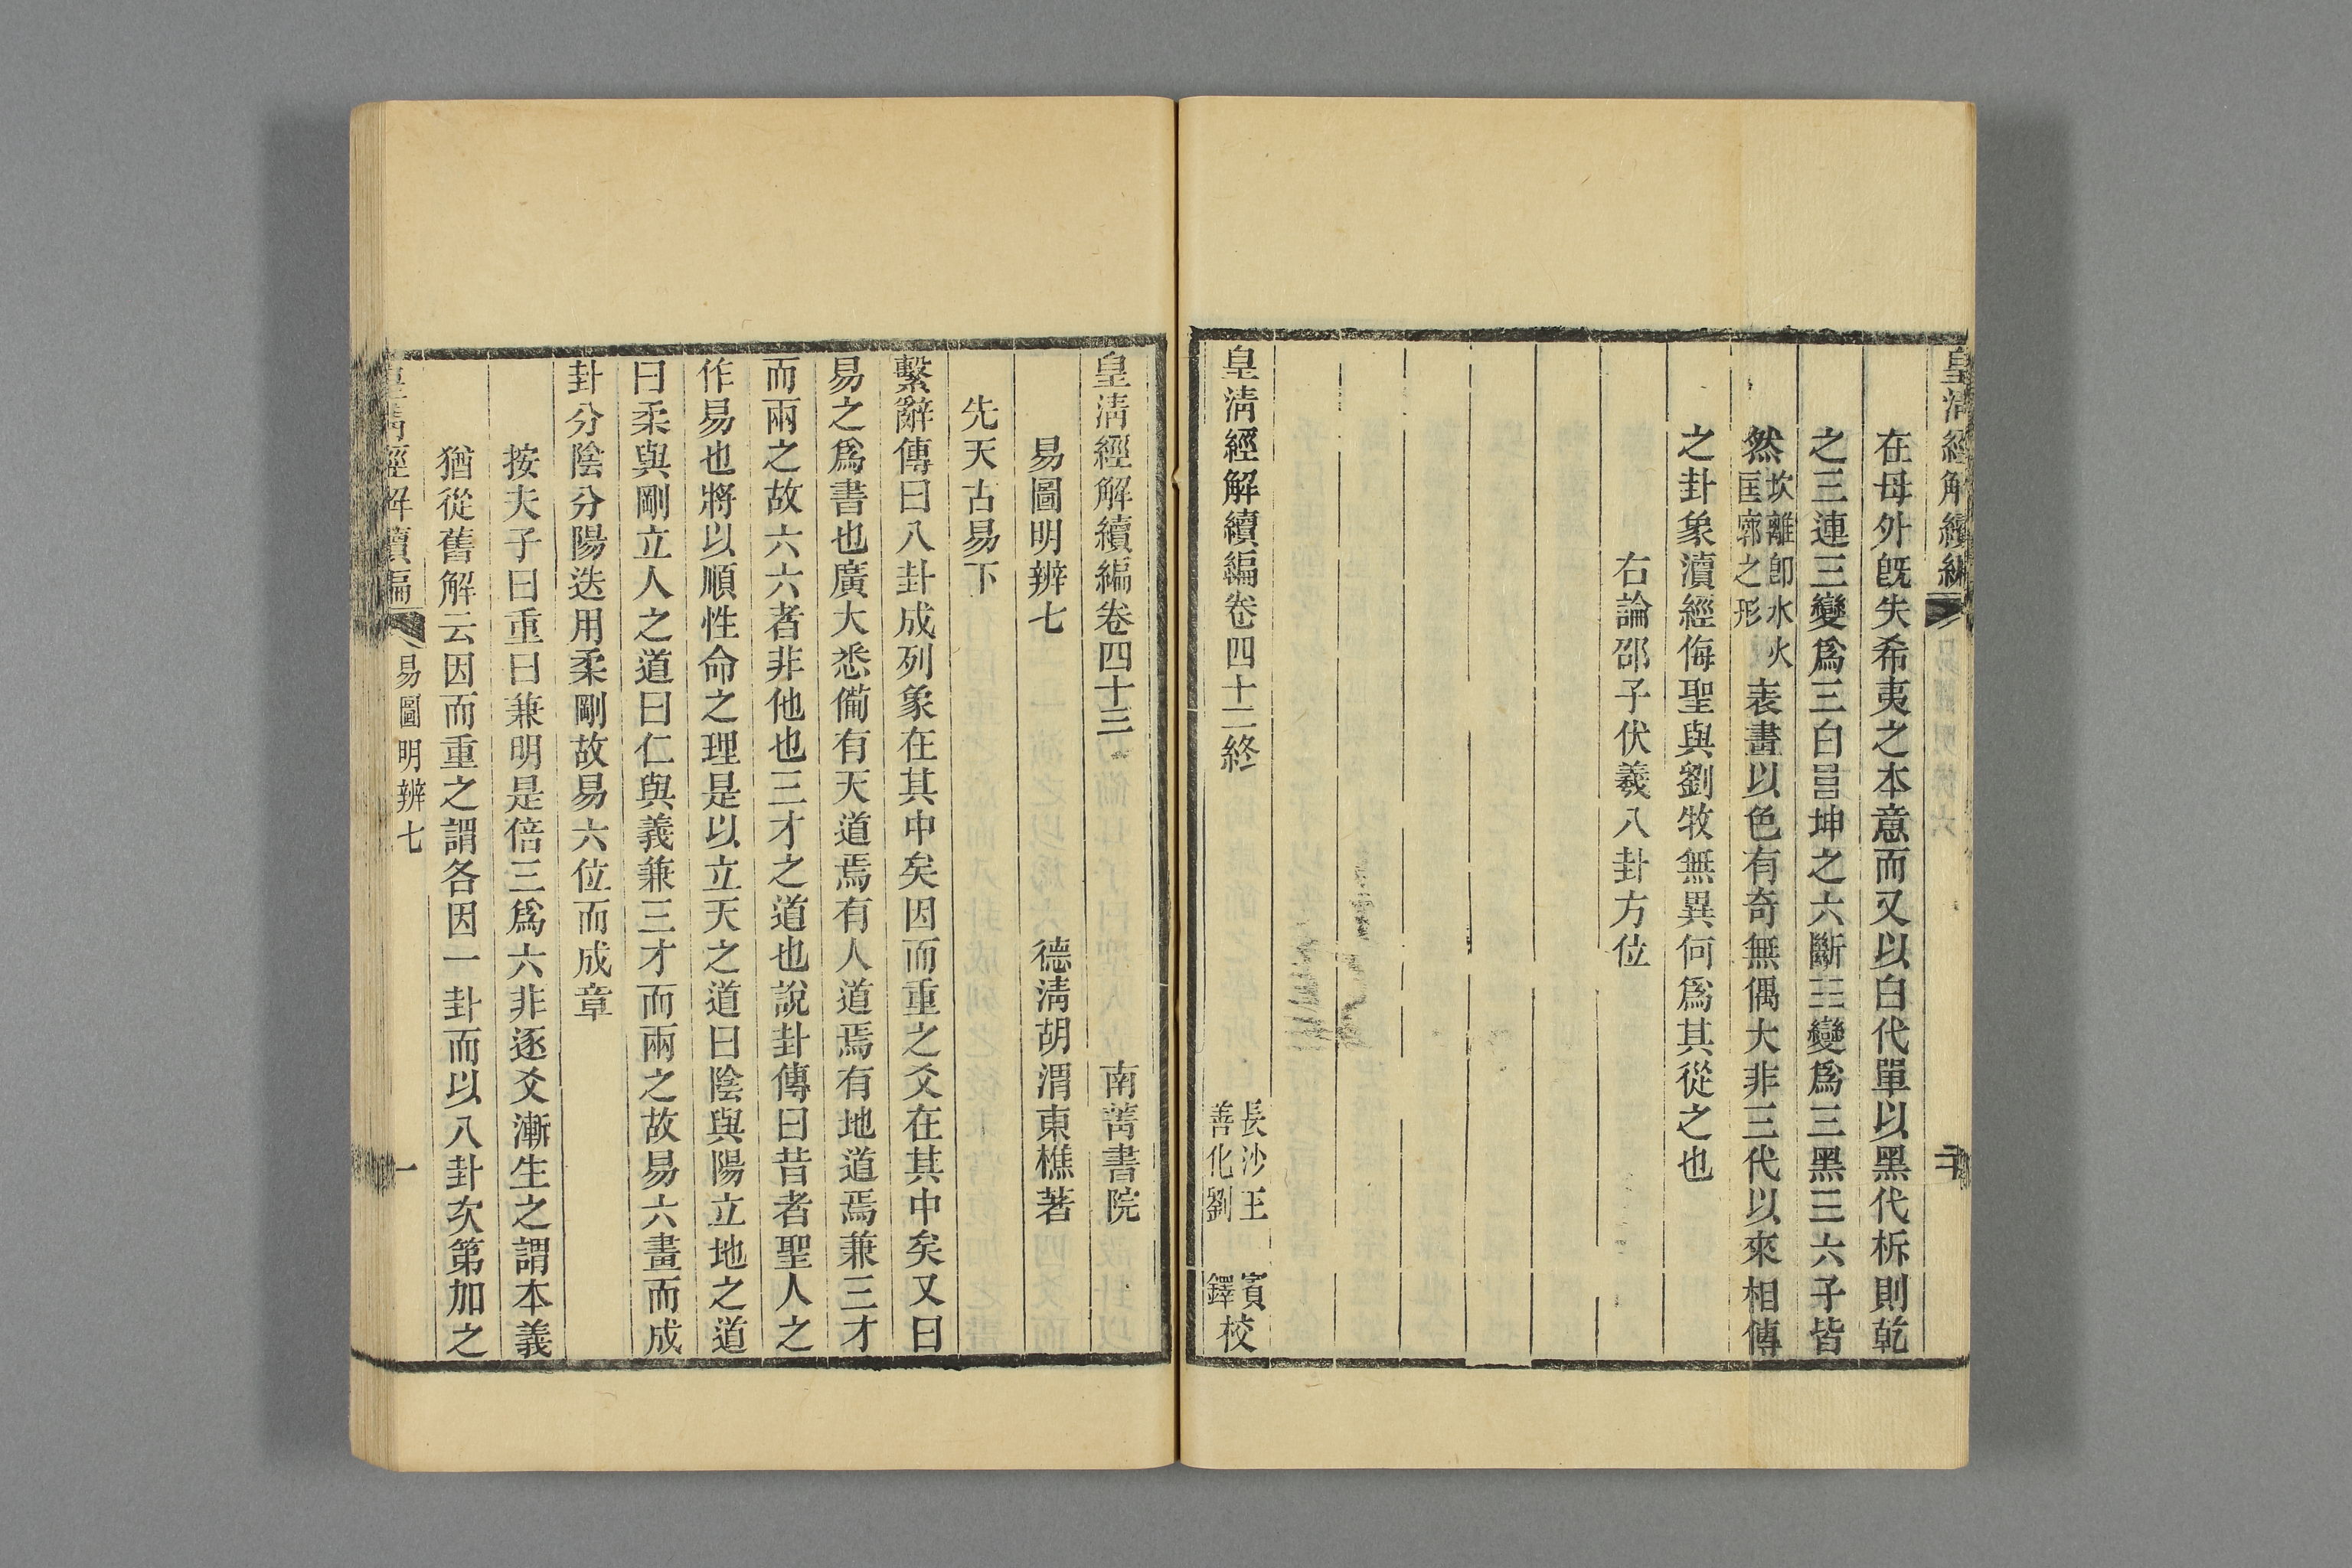 皇清經解續編
在母外旣失希夷之本意而又以白代單以黑代柝則乾
之三連三變爲三白☷坤之六斷三變爲三黑三六子皆
然坎離卽水火匡郭之形表畫以色有奇無偶大非三代以來相傳
之卦象瀆經侮聖與劉牧無異何爲其從之也
右論邵子伏羲八卦方位
皇淸經解續編卷四十二終
長沙王賓
善化劉鐸校
皇淸經解續編卷四十三
南菁書院
易圖明辨七
德淸胡渭東樵著
先天古易下
繫辭傳曰八卦成列象在其中矣因而重之爻在其中矣又曰
易之爲書也廣大悉備有天道焉有人道焉有地道焉兼三才
而兩之故六六者非他也三才之道也說卦傳曰昔者聖人之
作易也將以順性命之理是以立天之道曰陰與陽立地之道
曰柔與剛立人之道曰仁與義兼三才而兩之故易六畫而成
卦分陰分陽迭用柔剛故易六位而成章
按夫子曰重曰兼明是倍三爲六非逐爻漸生之謂本義
猶從舊解云因而重之謂各因一卦而以八卦次第加之
經解續編
易圖明辨七
一